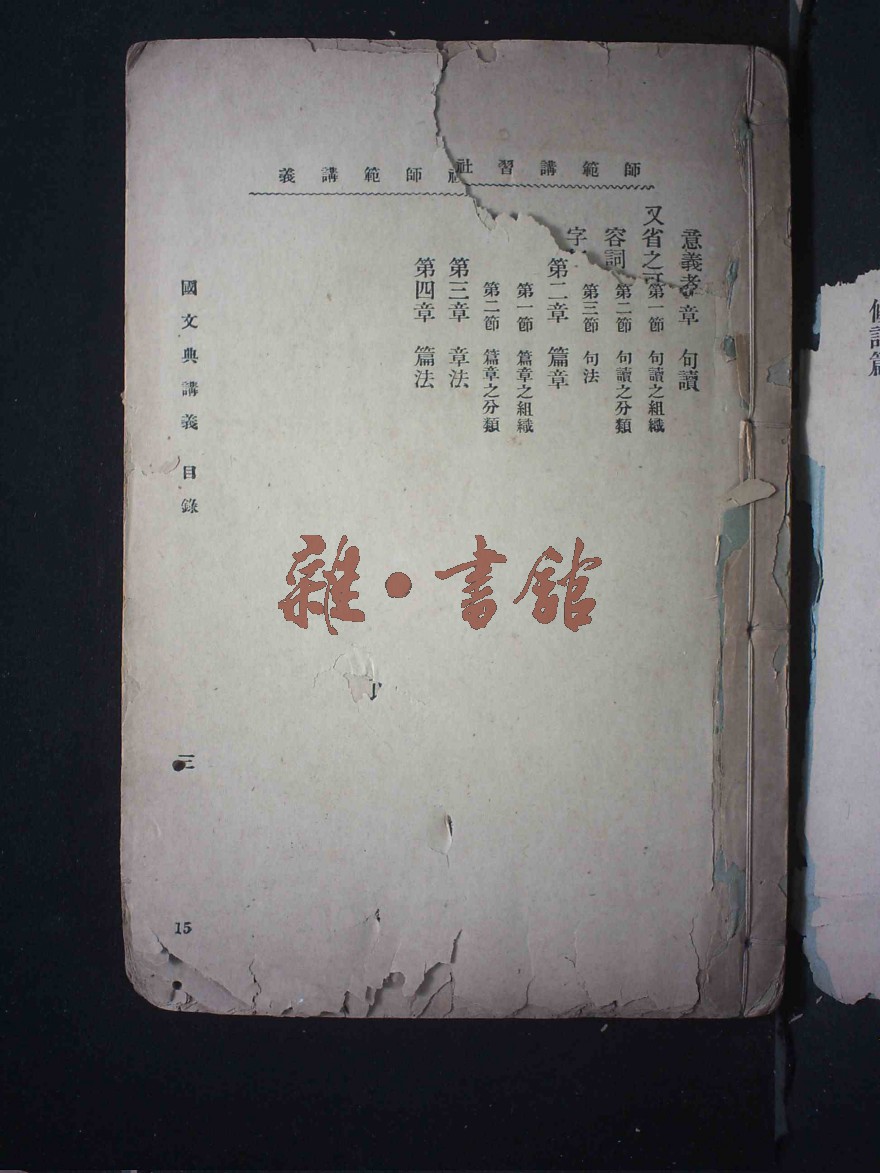 師範講習社
師範講義
意義者
章 句讀
又省之可
第一節 句讀之組織
容詞
第二節 句讀之分類
字
第三節 句法
第二章 篇章
第一節 篇章之組織
第二節 篇章之分類
第三章 章法
第四章 篇法
國文典講義 目錄
三
15
雜·書館